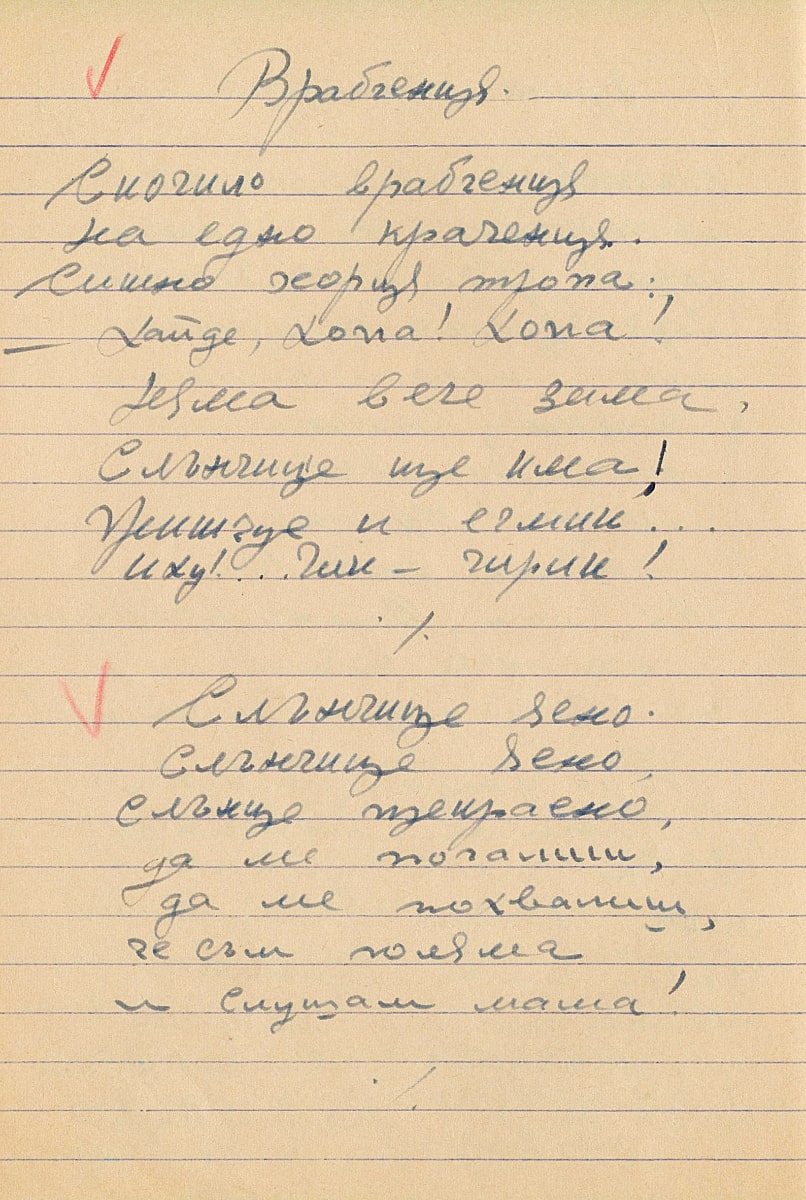 Врабченця.
Скочило врабченця
на едно краченця.
Ситно хорця тропа:
– Хайде, хопа! Хопа!
Няма вече зима,
Слънчице ще има!
и ечмик...
Иху!... Чик – чирик!
·/.
Слънчице ясно.
Слънчице ясно,
слънце прекрасно,
да ме погалиш,
да ме похвалиш,
че съм голяма
и слушам мама!
·/.